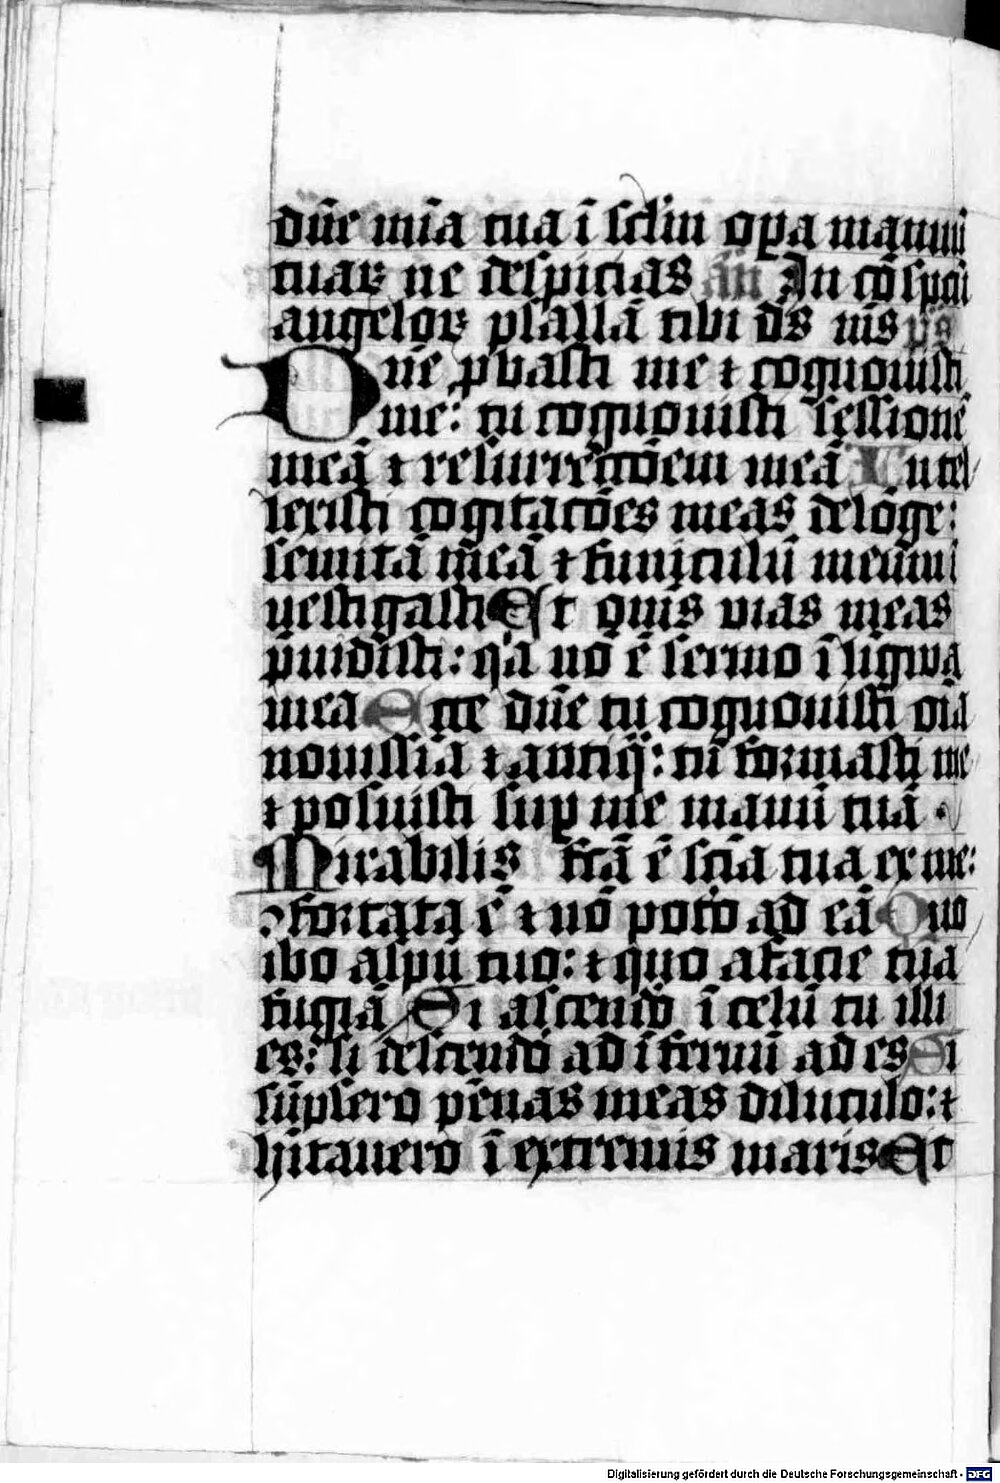 dn̄e mīa tua ī sclm̄ oꝑa manuū
tuaꝝ ne despicias añ In cōspcū
angeloꝝ psallā tibi ds̄ m̄s p̄s
Dn̄e ꝓbasti me ⁊ cognouisti
me: tu cognouisti sessionē
meā ⁊ resurrectōem meā Intel
lexisti cogitatōes meas delōge:
semitā meā ⁊ funiculū meūm ī
uestigasti Et om̄s vias meas
p̄uidisti: qa nō ē sermo ī ligwa
mea Ecce dn̄e tu cognouisti oīa
nouissīa ⁊ antiq̄: tu formasti me
⁊ posuisti suꝑ me manū tuā .
Mirabilis fcā ē scīa tua ex me:
ꝯfortata ē ⁊ nō poto ad eā Quo
ibo aspū tuo: ⁊ quo afacie tua
fugiā Si ascendo ī celū tu illi
es: si descendo ad īfernū ad es Si
sūpsero pēnas meas diluculo: ⁊
hītauero ī extremis maris Et
Digitalisierung gefördert durch die Deutsche Forschungsgemeinschaft - DFG